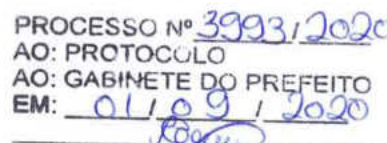 PROCESSO Nº 3993/2020
AO: PROTOCOLO
AO: GABINETE DO PREFEITO
EM: 01/09/2020